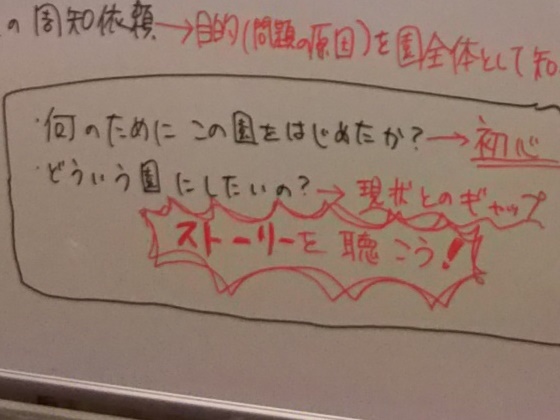 の周知依頼→目的(問題の原因)を園全体として知
・何のためにこの園をはじめたか?→初心
・どういう園にしたいの?→現状とのギャップ
ストーリーを聴こう!